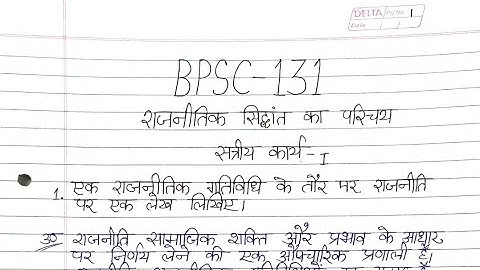 DELTA Pg No. 1
Date / /
BPSC-131
राजनीतिक सिद्धांत का परिचय
सत्रीय कार्य - I
1. एक राजनीतिक गतिविधि के तौर पर राजनीति
पर एक लेख लिखिए।
उ० राजनीति सामाजिक शक्ति और प्रभाव के आधार
पर निर्णय लेने की एक औपचारिक प्रणाली है,